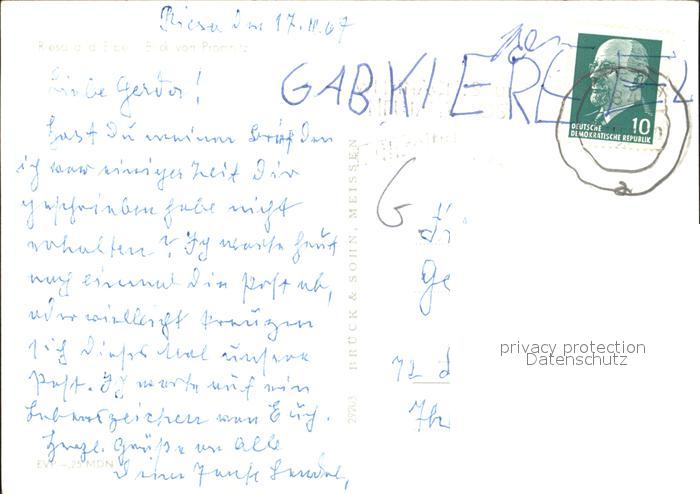 Riesa den 17.11.67
Riesa a. d. Elbe - Blick von Promnitz
Liebe Gerda!
hast Du meinen Brief den
ich vor einiger Zeit Dir
geschrieben habe nicht
erhalten? Ich warte heut
noch einmal die Post ab,
oder vielleicht kreuzen
sich dieses Mal unsere
Post. Ich warte auf ein
Lebenszeichen von Euch.
Herzl. Grüße an Alle
Deine Tante
EVP -,25 MDN
29703 BRÜCK & SOHN, MEISSEN
GABKIERE
10
DEUTSCHE
DEMOKRATISCHE REPUBLIK
a
G
Ge
72
privacy protection
Datenschutz